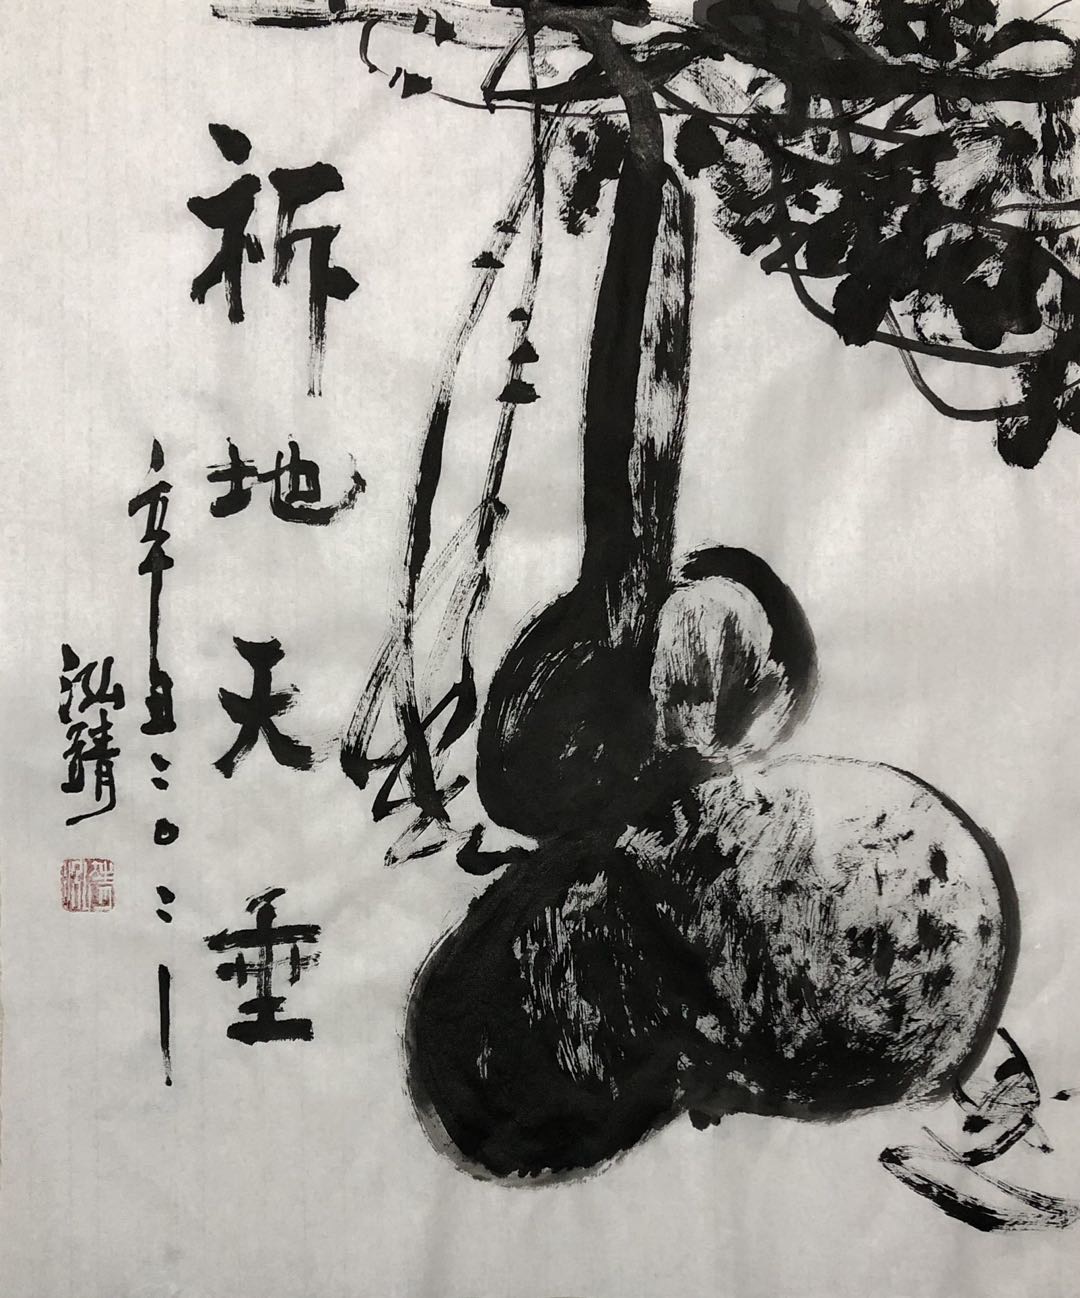 祈地天垂
辛丑二〇二一
泓錆